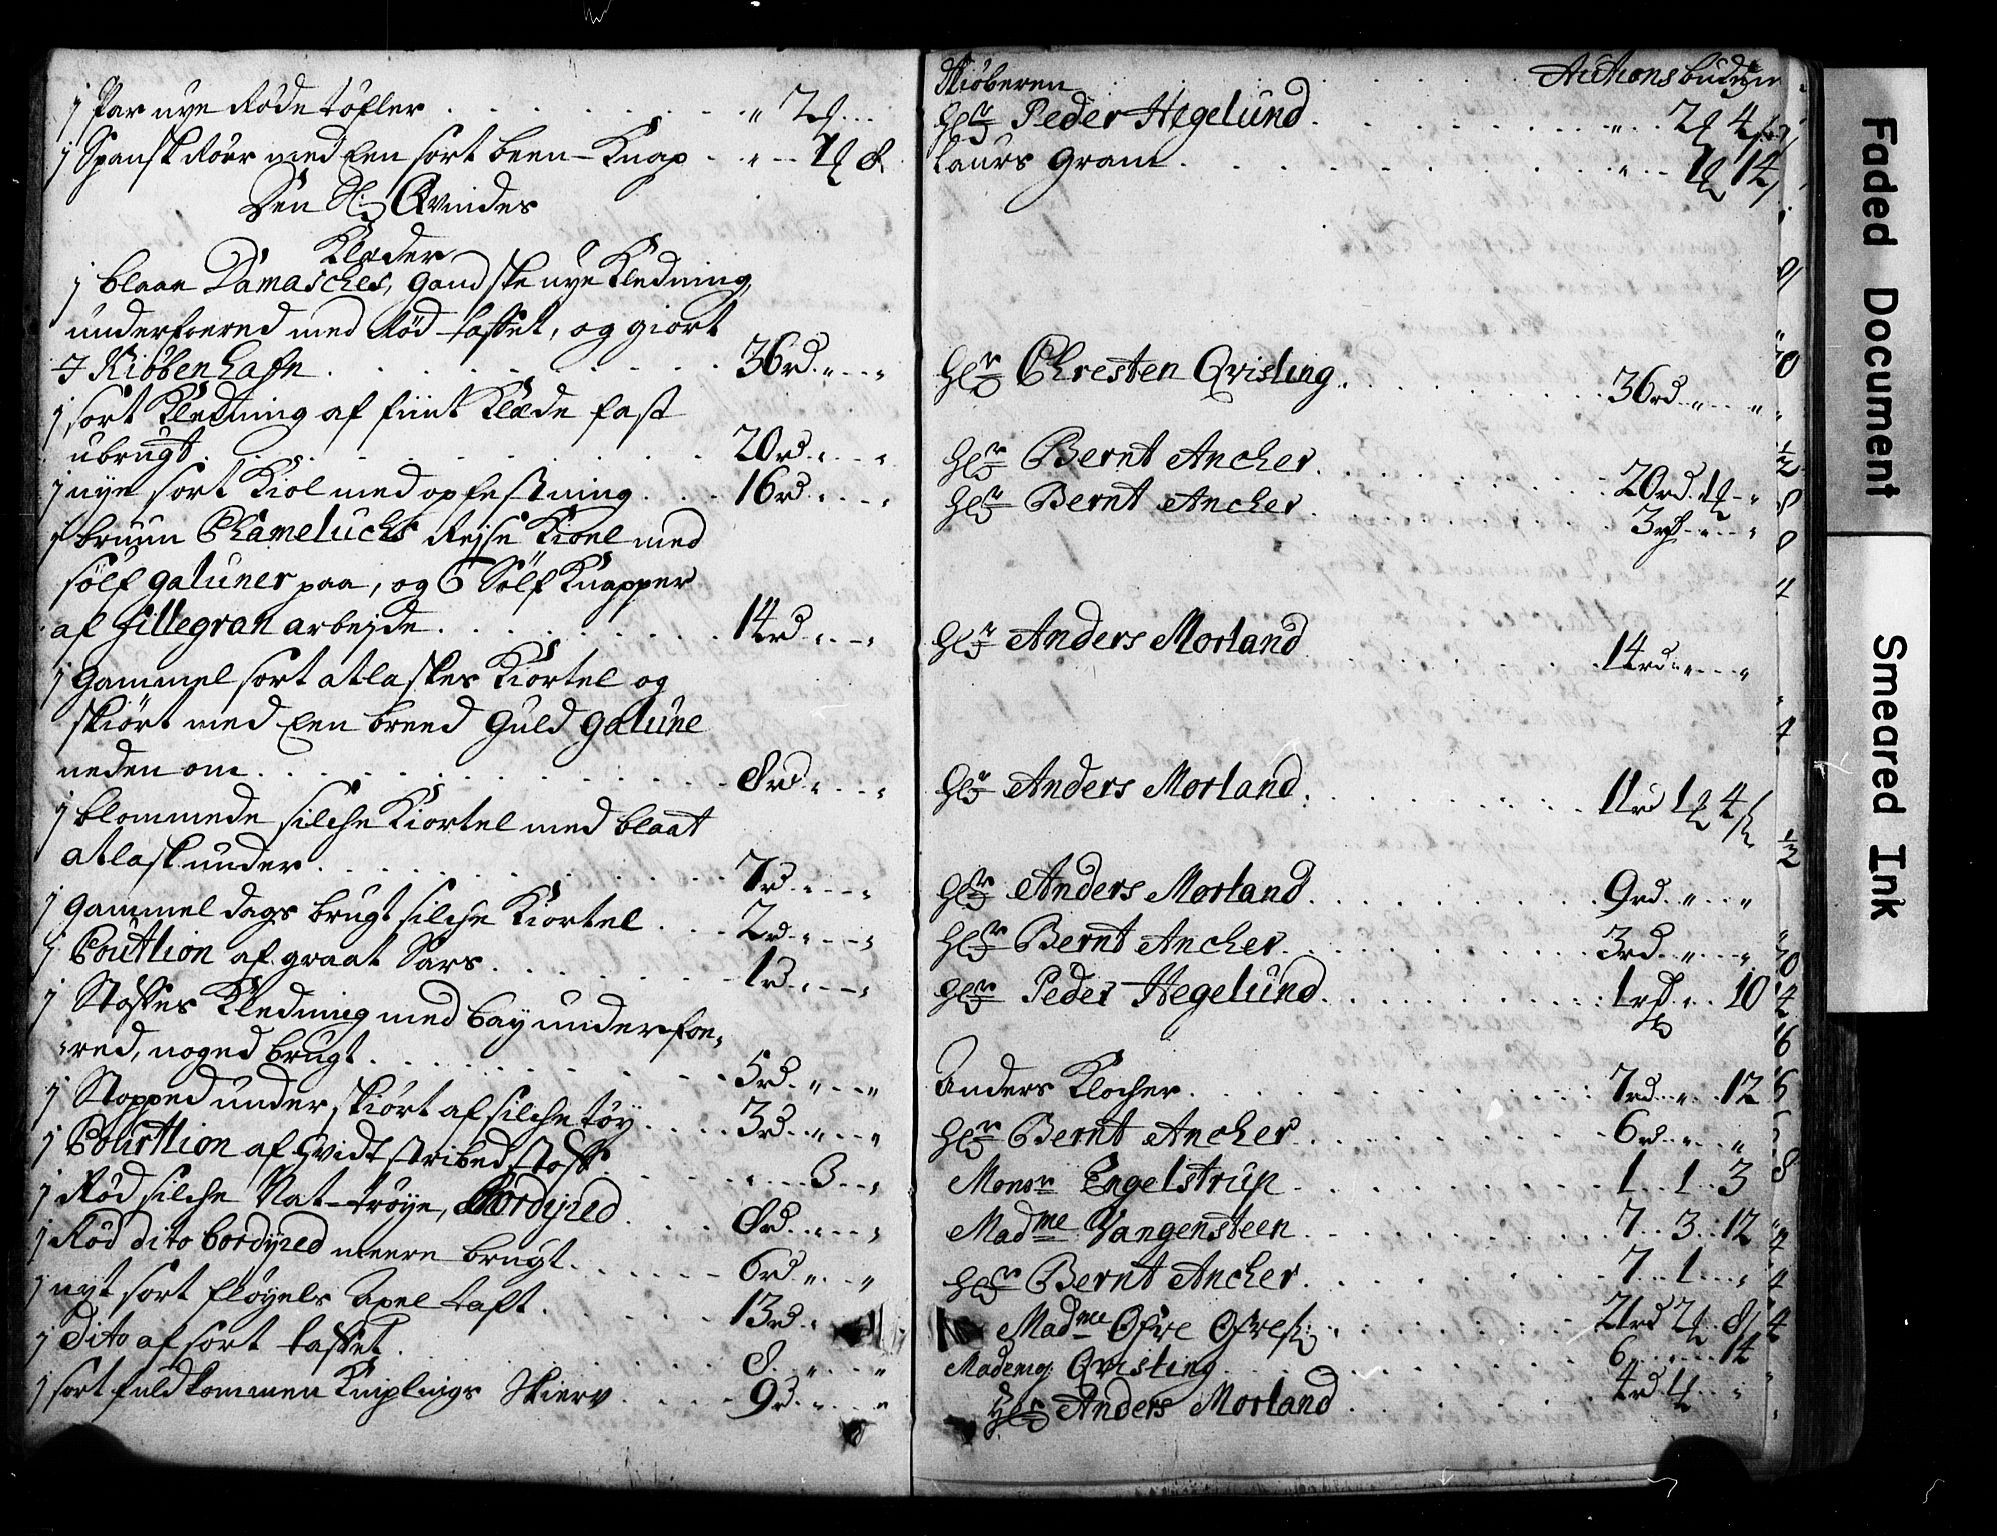 j Par nye Røde tøfler . . . " 2 ...
j Spansk Rør med Een sort been-Knap . " .. 1 8
Den Sl: Qvindes
Klæder
j blaae Damasches, gandske nye Kledning,
underfoered med Rød taffet, og giort
J Kiøbenhafn . . . 36rd " .. "
j sort Kledning af fiint Klæde fast
ubrugt . . . 20rd " .. "
j nye sort Kiol med opfestning . . 16rd " .. "
j bruun Chameluchs Rejse Kioel med
sølf galuner paa, og 6 Sølf Knapper
af fillegran arbejde . . . 14rd " .. "
j Gammel sort atlaskes Kiortel og
skiørt med Een breed Guld galune
neden om . . . 8rd " .. "
j blommede silche Kiortel med blaat
atlask under . . . 7rd " .. "
j gammel dags brugt silche Kiortel . . 2rd " .. "
j Coutlion af graat Sars . . . 1rd " .. "
j Stoffes Kledning med bay underfoe-
red, noged brugt . . . 5rd " .. "
j Stopped under skiørt af silche tøy . . 3rd " .. "
j Courtlion af hvidt stribed stoff . . " .. 3 .. "
j Rød silche Nat-trøye, bordyred . . 8rd " .. "
j Rød dito bordyred meere brugt . . 6rd " .. "
j nyt sort fløyels Apel taft . . 13rd "
j Dito af sort taffet . . . 8 . " .. "
j sort fuldkommen Kniplings Skierv . . 9rd " .. "
Kiøberen . . . Auctions budene
Hr Peder Hegelund . . . " .. 2 4
Laurs Gram . . . " .. 1 14
Hr Chresten Qvisling . . . 36rd " .. "
Hr Bernt Ancher . . . 20rd 1 - "
Hr Bernt Ancher . . . 3rd " .. "
Hr Anders Morland . . . 14rd " .. "
Hr Anders Morland . . . 11rd 1 4
Hr Anders Morland . . . 9rd " .. "
Hr Bernt Ancher . . . 3rd " .. "
Hr Peder Hegelund . . . 1rd " .. 10
Anders Klocher . . . 7rd " .. 12
Hr Bernt Ancher . . . 6rd " .. "
Monsr Engelstrup . . . 1 .. 1 .. 3
Madme Vangensteen . . . 7 .. 3 .. 12
Hr Bernt Ancher . . . 7 .. 1 .. "
Madme Øfre . . . 21rd 2 .. 8
Mademg. Qvisling . . . 6 ... 14
Hr Anders Morland . . . 4rd 4 .. "
Faded Document
Smeared Ink